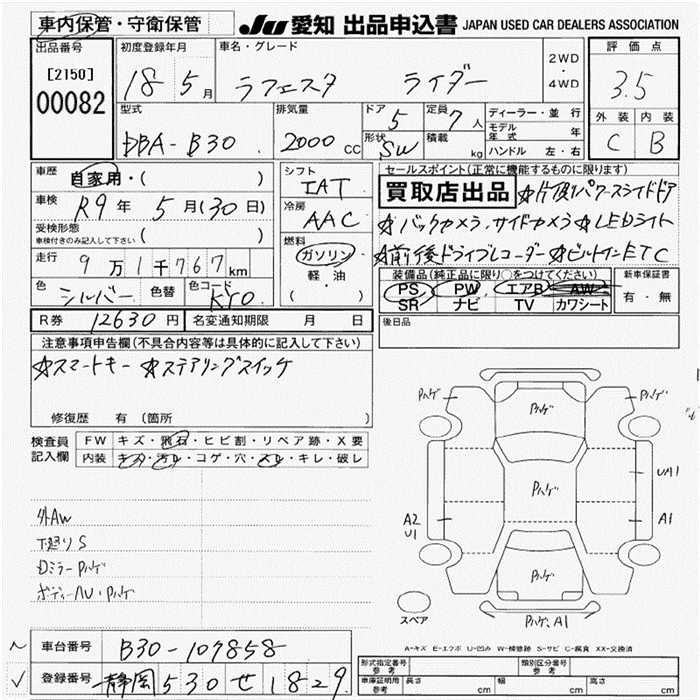 車内保管・守衛保管
JU 愛知 出品申込書 JAPAN USED CAR DEALERS ASSOCIATION
出品番号
[2150]
00082
初度登録年月
18 5月
車名・グレード
ラフェスタ ライダー
2WD
・
4WD
評価点
3.5
外装 内装
C B
型式
DBA-B30
排気量
2000 CC
ドア
5
形状
SW
定員
7人
積載
kg
ディーラー・並行
モデル年式 年
ハンドル 左・右
車歴
自家用・( )
車検
R9年 5月(30日)
受検形態
車検付きのみ記入して下さい ( )
走行
9万1千767km
色
シルバー
色替
色コード
KY0
シフト
IAT
冷房
AAC
燃料
ガソリン
軽・油
( )
セールスポイント(正常に機能するものに限ります)
買取店出品 ☆片側パワースライドドア
☆バックカメラ,サイドカメラ☆LEDライト
☆前後ドライブレコーダー☆ビルトインETC
装備品(純正品に限り○をつけてください)
PS PW エアB AW
SR ナビ TV カワシート
新車保証書
有・無
R券 12630円
名変通知期限 月 日
後日品
注意事項申告欄(不具合内容等は具体的に記入して下さい)
☆スマートキー ☆ステアリングスイッチ
修復歴 有(箇所
検査員
記入欄
FW キズ・飛石・ヒビ割・リペア跡・X要
内装 キズ・汚れ・コゲ・穴・スレ・キレ・破レ
外AW
下廻りS
Dミラー Pハゲ
ボディーAU・Pハゲ
Pハゲ
Pハゲ
Pハゲ
Pハゲ
UA1
A2
U1
A1
Pハゲ
Pハゲ、A1
スペア
A-キズ E-エクボ U-凹み W-補修跡 S-サビ C-腐食 XX-交換済
車台番号
B30-107858
登録番号
静岡530せ1829
形式指定番号
参考
類別区分番号
参考
車庫証明用
参考
長さ cm
幅 cm
高さ cm